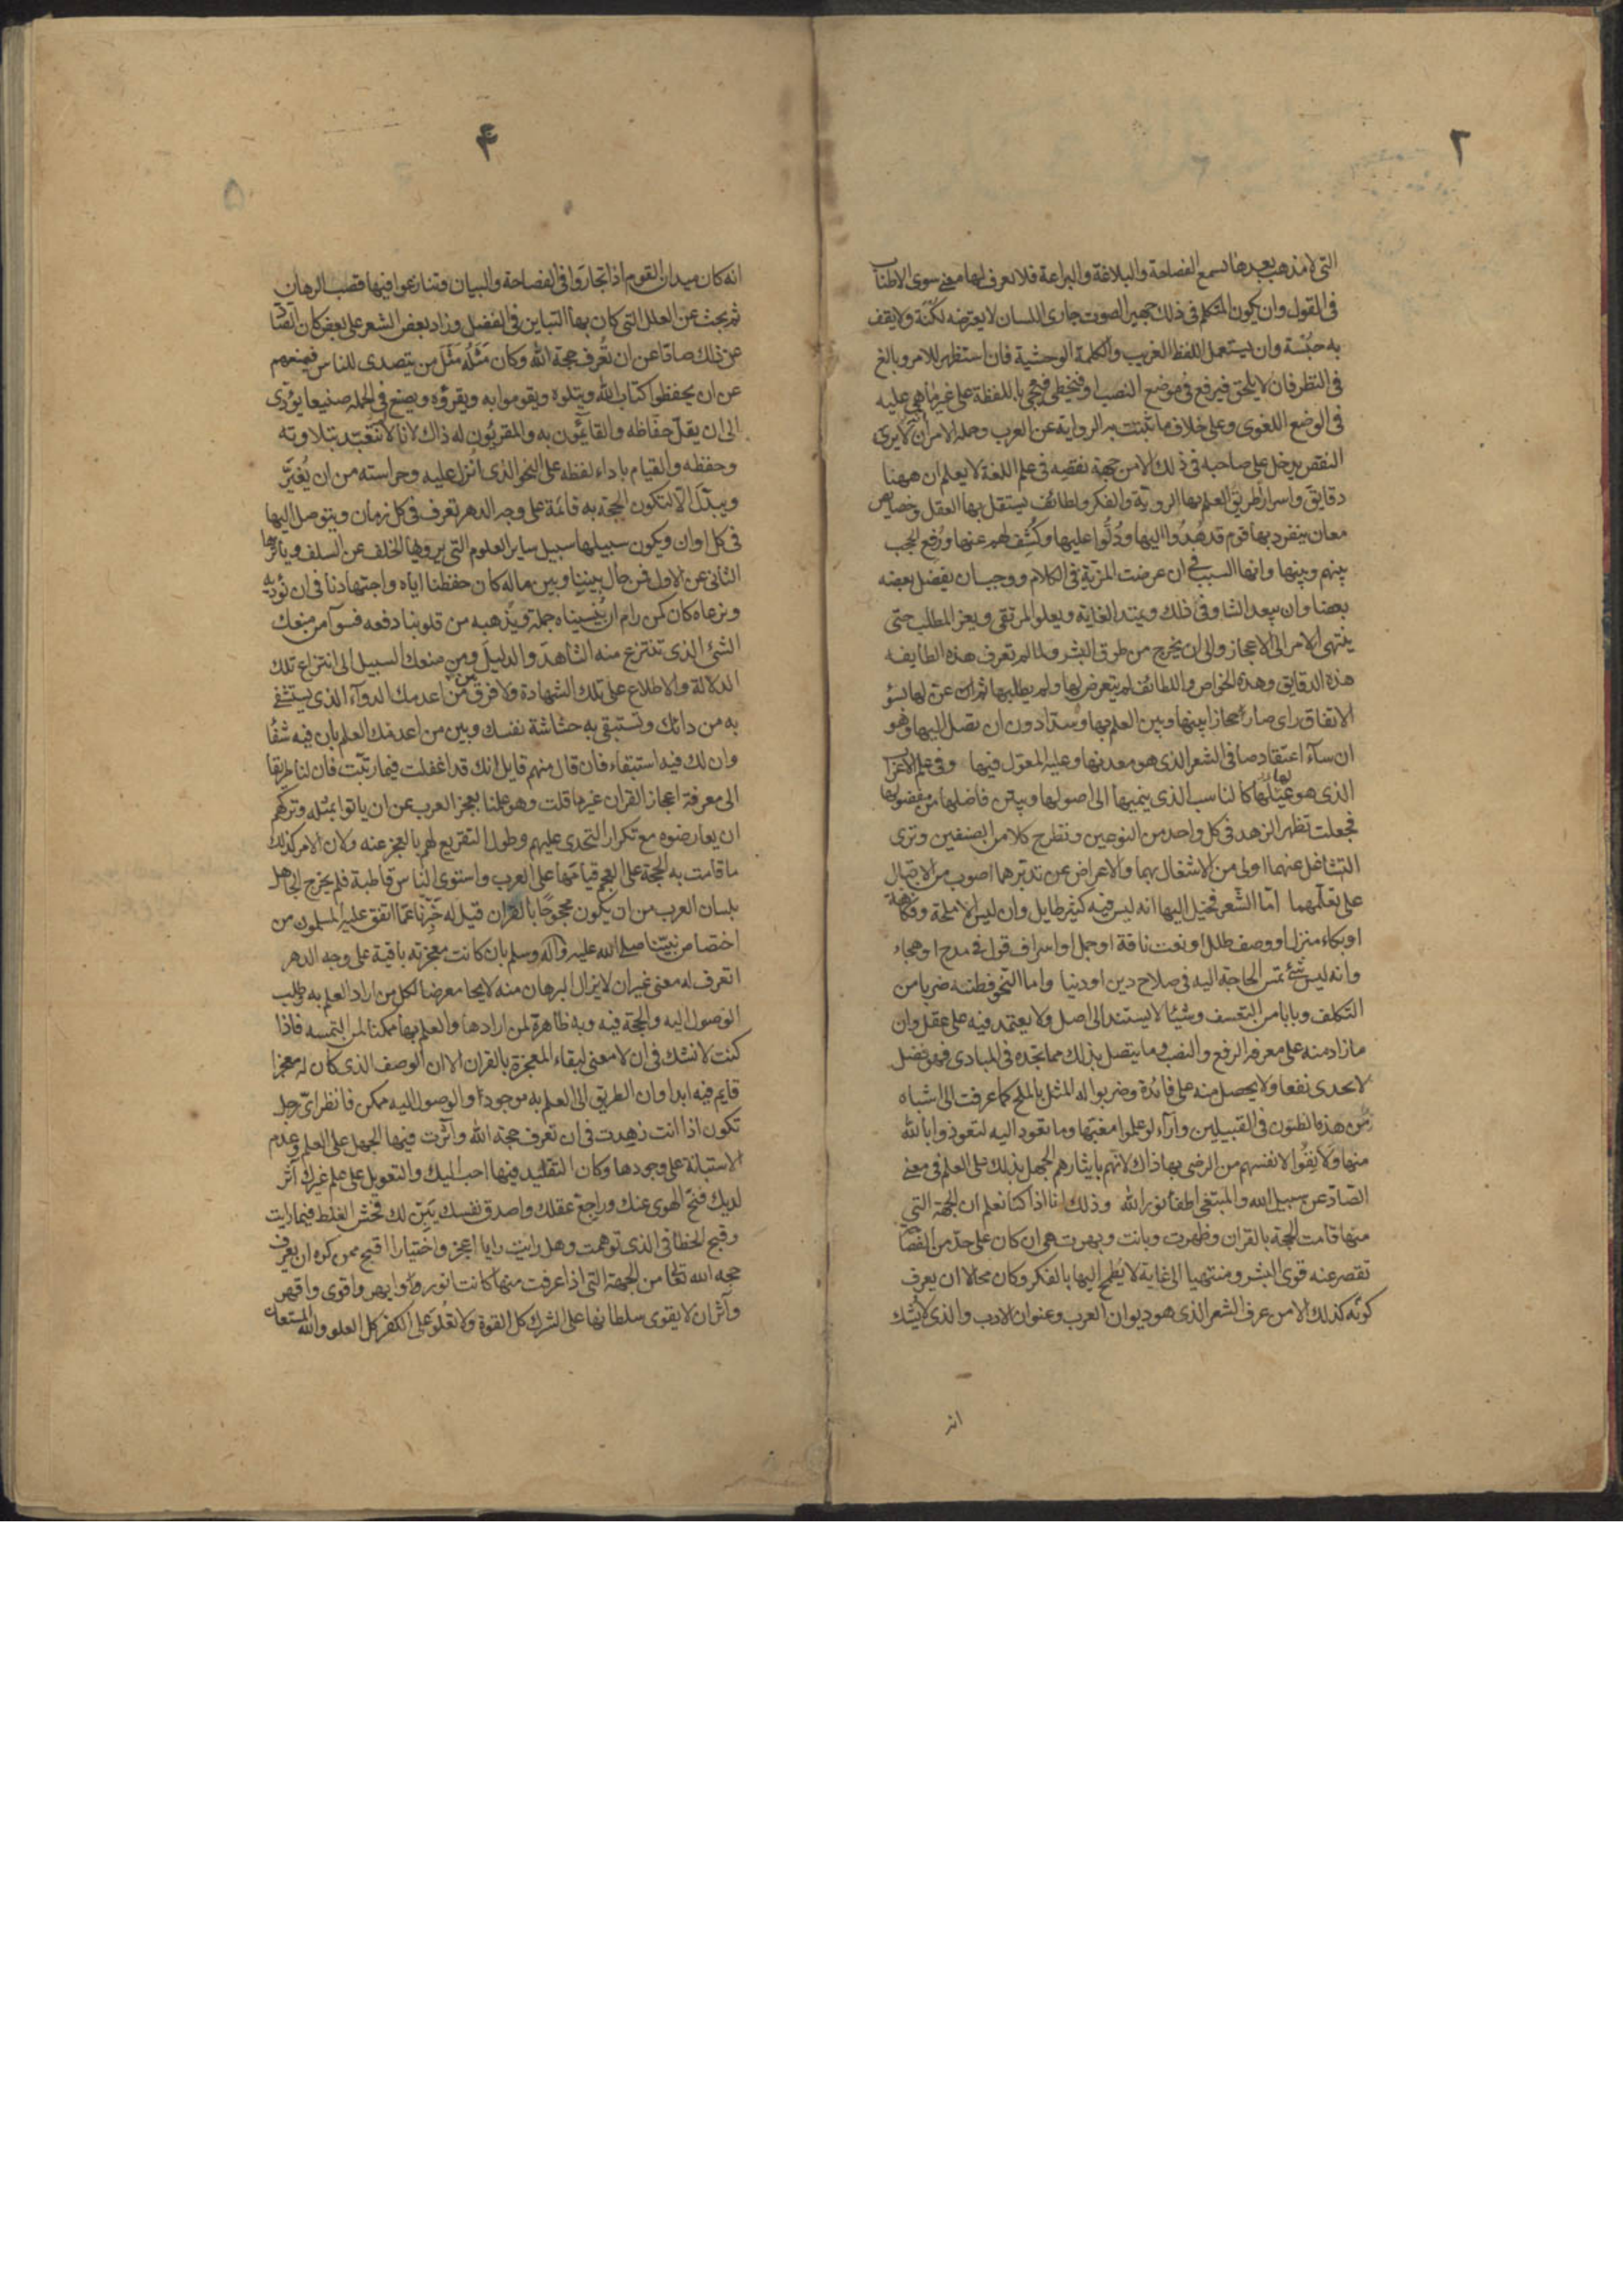 ٢
التى لا مذهب بعدها تسمع الفصاحة والبلاغة والبراعة فلا تعرف لها معنى سوى الاطناب
فى القول وان يكون المتكلم فى ذلك جهير الصوت جارى اللسان لا يعترضه لكنة ولا يقف
به حبسة وان يستعمل اللفظ الغريب والكلمة الوحشية فان استظهر للامر وبالغ
فى النظر فان لا يلحن فيرفع فى موضع النصب او فيخطى فيجى باللفظة على غير ما هى عليه
فى الوضع اللغوى وعلى خلاف ما ثبتت به الرواية عن العرب وجملة الامر انه لا يرى
النقص يدخل على صاحبه فى ذلك الا من جهة نقصه فى علم اللغة لا يعلم ان ههنا
دقايق واسرار طريق العلم بها الروية والفكر ولطائف يستقل بها العقل وخصايص
معان ينفرد بها قوم قد هُدُوا اليها ودُلُّوا عليها وكُشِف لهم عنها ورُفع الحجب
بينهم وبينها وانها السبب فى ان عرضت المزية فى الكلام ووجب ان يفضل بعضه
بعضا وان يبعد الشاو فى ذلك ويمتد الغاية ويعلو المرتقى ويعز المطلب حتى
ينتهى الامر الى الاعجاز والى ان يخرج من طوق البشر ولما لم تعرف هذه الطايفه
هذه الدقايق وهذه الخواص واللطائف لم يتعرض لها ولم يطلبها ثم ان عن لها بسؤ
الاتفاق راى صار حجازا بينها وبين العلم بها وسدا دون ان تصل اليها وهو
ان ساء اعتقادها فى الشعر الذى هو معدنها وعليه المعوّل فيها وفى علم الاعراب
الذى هو لها كالناسب الذى ينميها الى اصولها ويبين فاضلها من مفضولها
فجعلت تظهر الزهد فى كل واحد من النوعين وتطرح كلا من الصنفين وترى
التشاغل عنهما اولى من الاشتغال بهما والاعراض عن تدبرهما اصوب من الاقبال
على تعلّمهما امّا الشعر فخيل اليها انه ليس فيه كثير طايل وان ليس الا ملحة وفكاهة
او بكاء منزل او وصف طلل او نعت ناقة او جمل او اسراف قول فى مدح او هجاء
وانه ليس بشئ تمس الحاجة اليه فى صلاح دين او دنيا واما النحو فظنته ضربا من
التكلف وبابا من التعسف وشيئا لا يستند الى اصل ولا يعتمد فيه على عقل وان
ما زاد منه على معرفة الرفع والنصب وما يتصل بذلك مما تجده فى المبادى فهو فضل
لا يجدى نفعا ولا يحصل منه على فائدة وضربوا له المثل بالملح كما عرفت الى اشباه
هذه الظنون فى القبيلين وآراء لو علموا مغبتها وما تقود اليه لتعوذوا بالله
منها ولانفوا لانفسهم من الرضى بها ذاك لانهم بايثارهم الجهل بذلك على العلم فى معنى
الصّادّ عن سبيل الله والمبتغى اطفاء نور الله وذلك انا اذا كنا نعلم ان الجهة التى
منها قامت الحجة بالقران وظهرت وبانت وبهرت هى ان كان على حدّ من الفصاحة
تقصر عنه قوى البشر ومنتهيا الى غاية لا يطمح اليها بالفكر وكان محالا ان يعرف
كونه كذلك الا من عرف الشعر الذى هو ديوان العرب وعنوان الادب والذى لا يشك
انه
۴
۵
انه كان ميدان القوم اذا تجاروا فى الفصاحة والبيان وتنازعوا فيها قصب الرهان
ثم بحث عن العلل التى كان بها التباين فى الفضل وزاد بعض الشعر على بعض كان الصّادّ
عن ذلك صادّا عن ان تُعرف حجة الله وكان مَثَلُه مَثَل من يتصدى للناس فيمنعهم
عن ان يحفظوا كتاب الله ويتلوه ويقوموا به ويقرؤه ويصنع فى الجملة صنيعا يؤدى
الى ان يقلّ حفّاظه والقائمون به والمقرئون له ذاك لانا لا نتعبد بتلاوته
وحفظه والقيام باداء لفظه على النحو الذى انزل عليه وحراسته من ان يُغيَّر
ويبدّل الا لتكون الحجة به قائمة على وجه الدهر تعرف فى كل زمان ويتوصل اليها
فى كل اوان ويكون سبيلها سبيل ساير العلوم التى يرويها الخلف عن السلف ويأثرها
الثانى عن الاول فمن حال بيننا وبين ماله كان حفظنا اياه واجتهادنا فى ان نؤديه
ونرعاه كان كمن رام ان يُنْسيناه جملة ويُذهبه من قلوبنا دفعه فسواء من منعك
الشئ الذى تنتزع منه الشاهد والدليل ومن منعك السبيل الى انتزاع تلك
الدلالة والاطلاع على تلك الشهادة ولا فرق بين من اعدمك الدواء الذى يستشفى
به من دائك وتستبقى به حشاشة نفسك وبين من اعدمك العلم بان فيه شفاء
وان لك فيه استبقاء فان قال منهم قايل انك قد اغفلت فيما رتبت فان لنا طريقا
الى معرفة اعجاز القران غير ما قلت وهو علمنا بعجز العرب عن ان ياتوا بمثله وتركهم
ان يعارضوه مع تكرار التحدى عليهم وطول التقريع لهم بالعجز عنه ولان الامر كذلك
ما قامت به الحجة على العجم قيامها على العرب واستوى الناس قاطبة فلم يخرج الجاهل
بلسان العرب من ان يكون محجوجا بالقران قيل له خبّرنا عمّا اتفق عليه المسلمون من
اختصاص نبيّنا صلى الله عليه وآله وسلم بان كانت معجزته باقية على وجه الدهر
اتعرف له معنى غير ان لا يزال البرهان منه لايحا معرضا لكل من اراد العلم به وطلب
الوصول اليه والحجة فيه وبه ظاهرة لمن ارادها والعلم بها ممكنا لمن التمسه فاذا
كنت لا تشك فى ان لا معنى لبقاء المعجزة بالقران الا ان الوصف الذى كان له معجزا
قايم فيه ابدا وان الطريق الى العلم به موجود او الوصول اليه ممكن فانظر اىّ رجل
تكون اذا انت زهدت فى ان تعرف حجة الله وآثرت فيها الجهل على العلم وعدم
الاستبانة على وجودها وكان التقليد فيها احب اليك والتعويل على علم غيرك آثر
لديك فنحّ الهوى عنك وراجع عقلك واصدق نفسك يَبِن لك فحش الغلط فيما رايت
وقبح الخطا فى الذى توهمت وهل رايت رايا اعجز واختيارا اقبح ممن كره ان يعرف
حجة الله تعالى من الجهة التى اذا عرفت منها كانت انور وابهر واقوى واقهر
وآثر ان لا يقوى سلطانها على الشرك كل القوة ولا تعلو على الكفر كل العلو والله المستعان